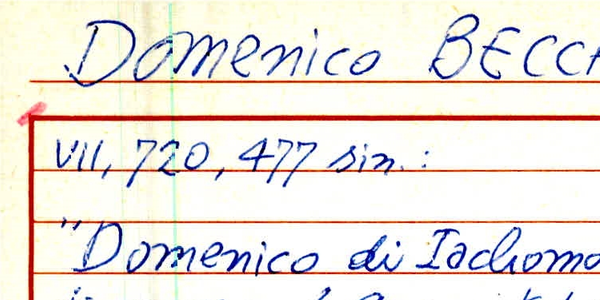 Domenico BECCA
VII, 720, 477 sin.:
"Domenico di Iachomo